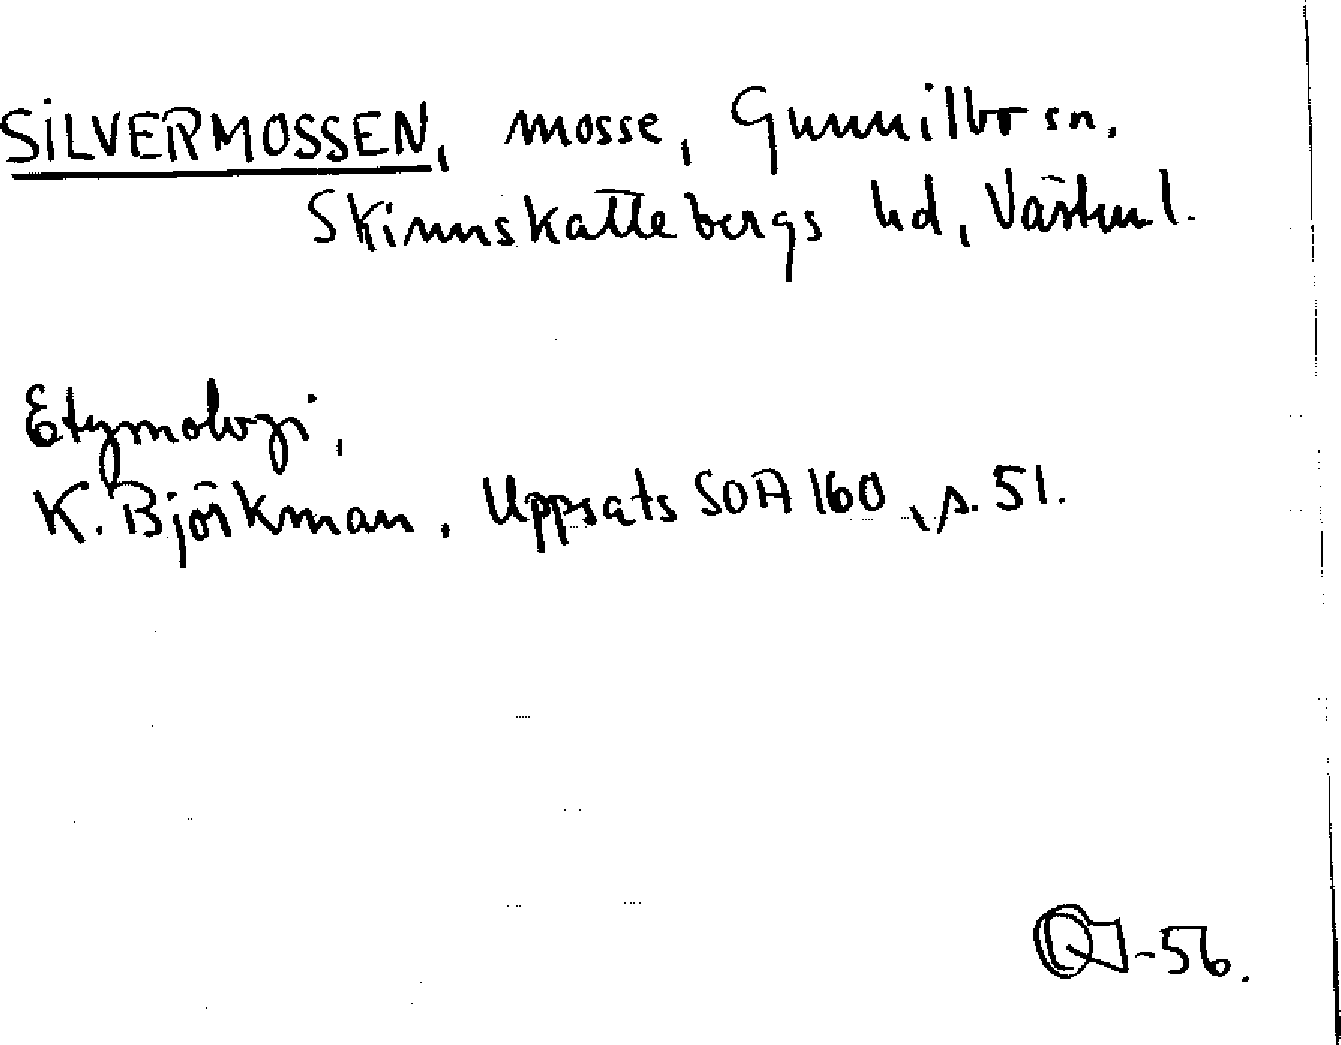 SILVERMOSSEN, mosse, Gunnilbo sn.
Skinnskattebergs hd, Västml.
Etymologi,
K. Björkman, Uppsats SOA 160, s. 51.
-56.